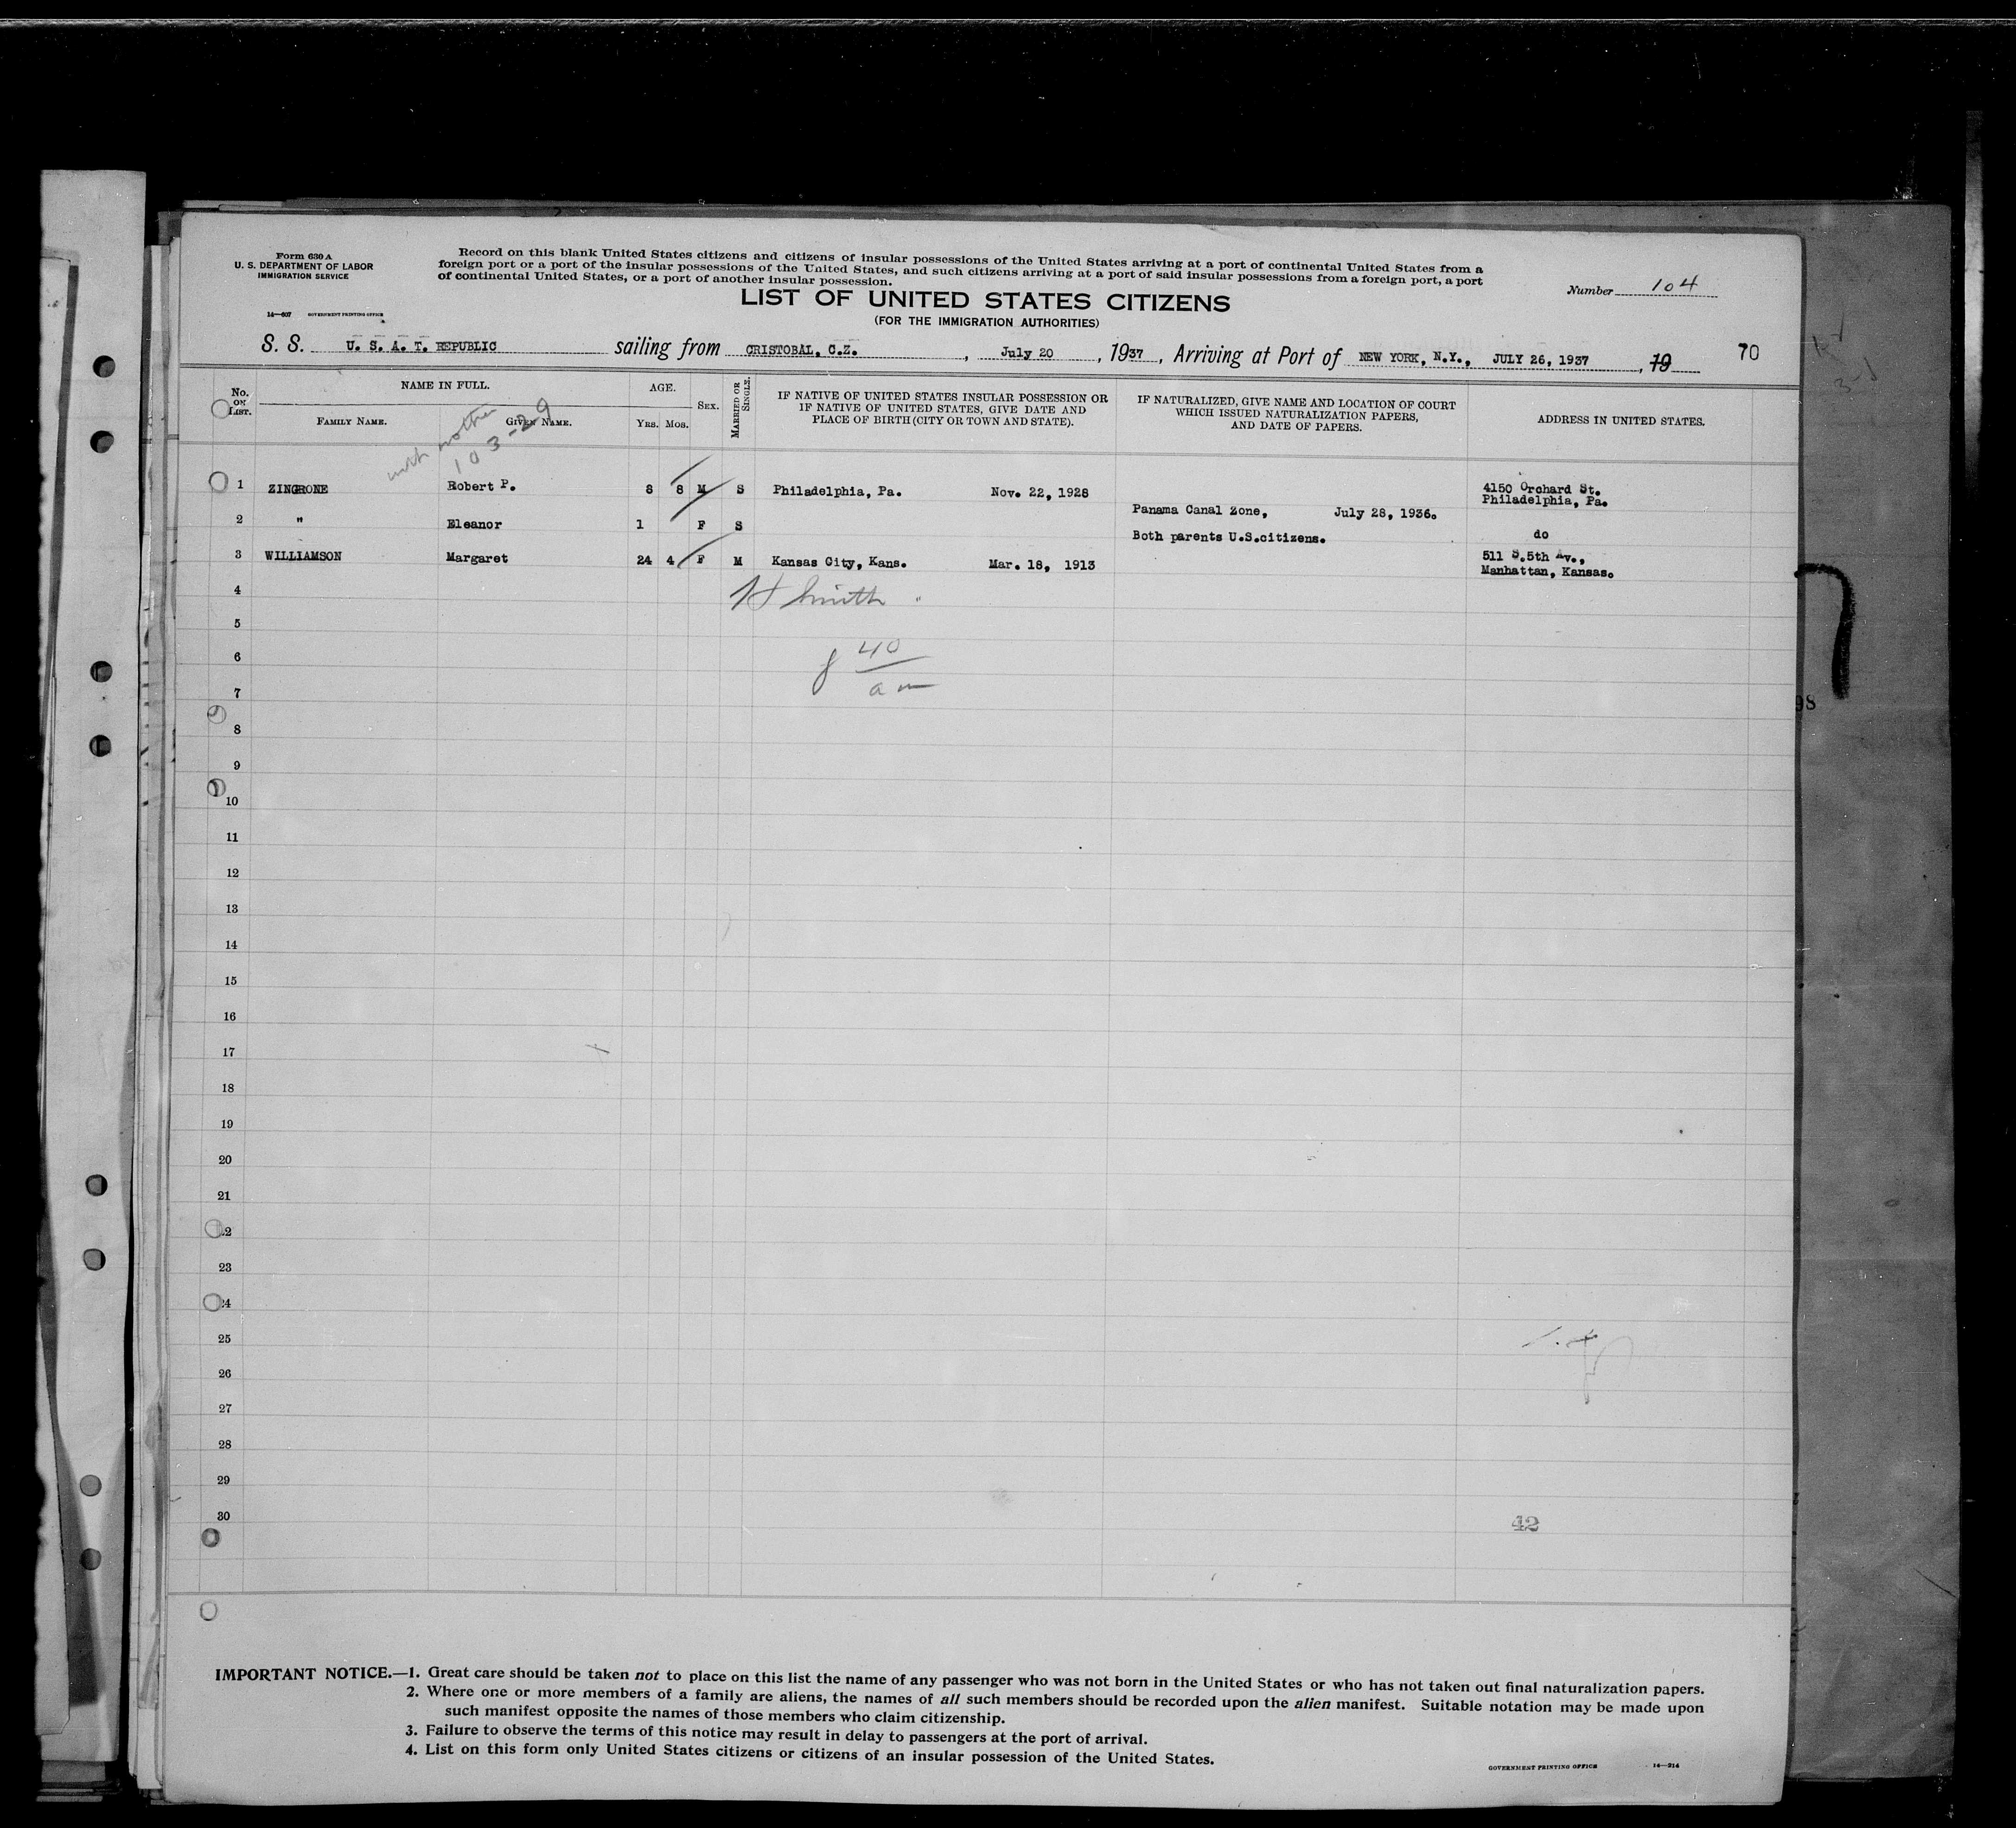 Form 630 A
U. S. DEPARTMENT OF LABOR
IMMIGRATION SERVICE
14—607 GOVERNMENT PRINTING OFFICE
Record on this blank United States citizens and citizens of insular possessions of the United States arriving at a port of continental United States from a
foreign port or a port of the insular possessions of the United States, and such citizens arriving at a port of said insular possessions from a foreign port, a port
of continental United States, or a port of another insular possession.
Number 104
LIST OF UNITED STATES CITIZENS
(FOR THE IMMIGRATION AUTHORITIES)
S. S. U. S. A. T. REPUBLIC sailing from CRISTOBAL, C.Z. , July 20 , 1937 , Arriving at Port of NEW YORK, N.Y., JULY 26, 1937 , 19
70
No. ON LIST.
NAME IN FULL.
FAMILY NAME.
GIVEN NAME.
AGE.
YRS. MOS.
SEX.
MARRIED OR SINGLE.
IF NATIVE OF UNITED STATES INSULAR POSSESSION OR
IF NATIVE OF UNITED STATES, GIVE DATE AND
PLACE OF BIRTH (CITY OR TOWN AND STATE).
IF NATURALIZED, GIVE NAME AND LOCATION OF COURT
WHICH ISSUED NATURALIZATION PAPERS,
AND DATE OF PAPERS.
ADDRESS IN UNITED STATES.
with mother
103-29
1 ZINGRONE Robert P. 8 8 M S Philadelphia, Pa. Nov. 22, 1928 4150 Orchard St.
Philadelphia, Pa.
Panama Canal Zone, July 28, 1936.
2 " Eleanor 1 F S
Both parents U.S.citizens. do
3 WILLIAMSON Margaret 24 4 F M Kansas City, Kans. Mar. 18, 1913 511 S.5th Av.,
Manhattan, Kansas.
4 Smith
5
6 40
7 am
8
98
9
10
11
12
13
14
15
16
17
18
19
20
21
22
23
24
25
26
27
28
29
30
42
IMPORTANT NOTICE.—1. Great care should be taken not to place on this list the name of any passenger who was not born in the United States or who has not taken out final naturalization papers.
2. Where one or more members of a family are aliens, the names of all such members should be recorded upon the alien manifest. Suitable notation may be made upon
such manifest opposite the names of those members who claim citizenship.
3. Failure to observe the terms of this notice may result in delay to passengers at the port of arrival.
4. List on this form only United States citizens or citizens of an insular possession of the United States.
GOVERNMENT PRINTING OFFICE 14—214